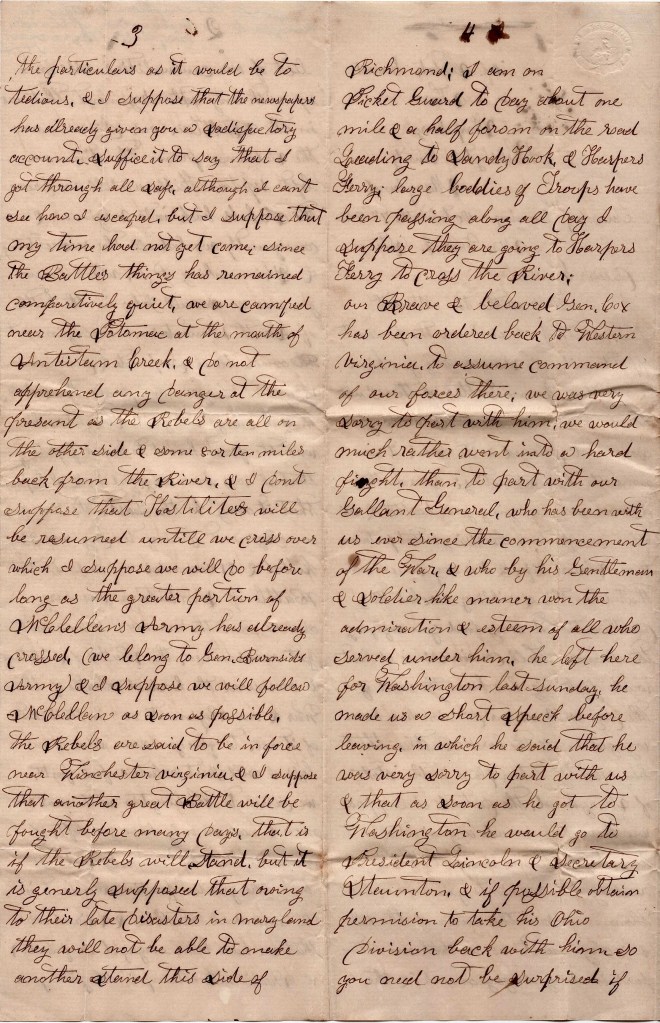 3
the particulars as it would be to
tedious, & I suppose that the newspapers
has already given you a sadisfactory
account, suffice it to say that I
got through all safe, although I cant
see how I escaped, but I suppose that
my time had not yet come; since
the Battles things has remained
comparetively quiet, we are camped
near the Potomac at the mouth of
Antietam Creek, & do not
apprehend any danger at the
present as the Rebels are all on
the other side & some 8 or ten miles
back from the River, & I dont
suppose that Hostilites will
be resumed untill we cross over
which I suppose we will do before
long as the greater portion of
McClellans Army has already
crossed, (we belong to Gen. Burnsids
Army) & I suppose we will follow
McClellan as soon as possible.
the Rebels are said to be in force
near Winchester virginia, & I suppose
that another great Battle will be
fought before many days, that is
if the Rebels will stand, but it
is generly supposed that owing
to their late disasters in maryland
they will not be able to make
another stand this side of
4
Richmond; I am on
Picket Guard to day about one
mile & a half from on the road
Leading to Sandy Hook, & Harpers
Ferry; large boddies of Troops have
been passing along all day I
suppose they are going to Harpers
Ferry to cross the River;
our Brave & beloved Gen. Cox
has been ordered back to Western
Virginia, to assume command
of our forces there, we was very
sorry to part with him, we would
much rather went into a hard
fight, than to part with our
Gallant General, who has been with
us ever since the commencement
of the War, & who by his Gentleman
& Soldier like maner won the
admiration & esteem of all who
served under him, he left here
for Washington last sunday, he
made us a short speech before
leaving, in which he said that he
was very sorry to part with us
& that as soon as he got to
Washington he would go to
President Lincoln & Secretary
Staunton, & if possible obtain
permision to take his Ohio
Division back with him so
you need not be surprised if